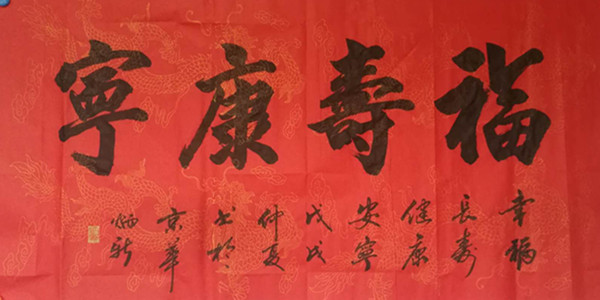 福壽康寧
幸福
長壽
健康
安寧
戊戌
仲夏
书於
京華